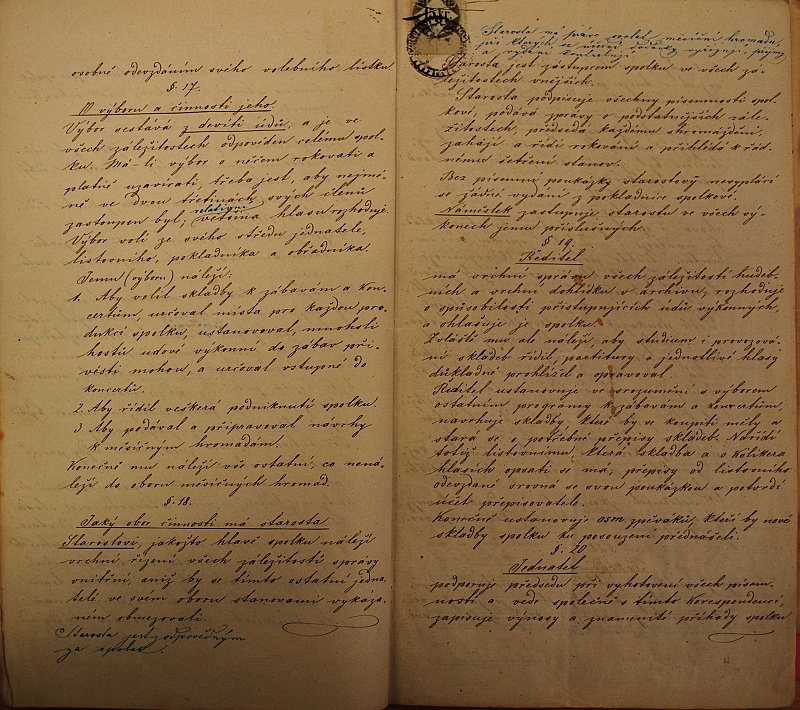 osobně odevzdáním svého volebního lístku.
§ 17.
O výboru a činnosti jeho.
Výbor sestává z devíti údů, a je ve
všech záležitostech odpověden celému spol-
ku. Má-li výbor o něčem rokovati a
platně uzavírati, třeba jest, aby nejmé-
ně ve dvou třetinách svých členů
zastoupen byl; relativní většina hlasů rozhoduje.
Výbor volí ze svého středu jednatele,
listovního, pokladníka a obřadníka.
Jemu (výboru) náleží:
1. Aby volil skladby k zábavám a kon-
certům, určoval místa pro každou pro-
dukci spolku, ustanovoval, mnoholi
hostů udové výkonní do zábav při-
vésti mohou, a určoval vstupné do
koncertů.
2. Aby řídil veškerá podniknutí spolku.
3 Aby podával a připravoval návrhy
k měsíčným hromadám.
Konečně mu náleží vše ostatní, co nená-
leží do oboru měsíčných hromad.
§. 18.
Jaký obor činnosti má starosta
Starostovi, jakožto hlavě spolku náleží
vrchní řízení všech záležitostí správy
vnitřní, aniž by se tímto ostatní jedna-
telé ve svém oboru stanovami vykáza-
ném obmezovali.
Starosta jen zodpovědným
za spolek
Starosta má právo svolat měsíční hromadu
při kterých se
Starosta jest zástupcem spolku ve všech zá-
ležitostech vnějších.
Starosta podpisuje všechny písemnosti spol-
kové, podává zprávy o podstatnějších zále-
žitostech, předsedá každému shromáždění,
zahájí a řídí rokování a přihlédá k řád-
nému šetření stanov.
Bez písemní poukázky starostovy nevyplácí
se žádné vydání z pokladnice spolkové.
Náměstek zastupuje starostu ve všech vý-
konech jemu příslušných.
§ 19.
Ředitel
má vrchní správu všech záležitostí hudeb-
ních a vrchní dohlídku v archivu, rozhoduje
o spůsobilosti přistupujících údů výkonných,
a ohlašuje je spolku.
Zvláště mu ale náleží, aby studium i provozová-
ní skladeb řídil, partitury a jednotlivé hlasy
důkladně prohlížel a opravoval.
Ředitel ustanovuje ve srozumění s výborem
ostatním, programy k zábavám a koncertům,
navrhuje skladby, které by se koupiti měly a
stará se o potřebné přepisy skladeb. Nařídí
totiž listovnímu, která skladba a o kolikera
hlasích opsati se má, přepisy od listovního
odevzdané srovná se svou poukázkou a potvrdí
účet přepisovatele.
Konečně ustanovuje osm zpěváků, kteří by nové
skladby spolku ku posouzení přednášeli.
§. 20
Jednatel
podporuje předsedu při vyhotovení všech písem-
ností a vede společně s tímto korespondenci,
zapisuje výnosy a znamenité příhody spolku